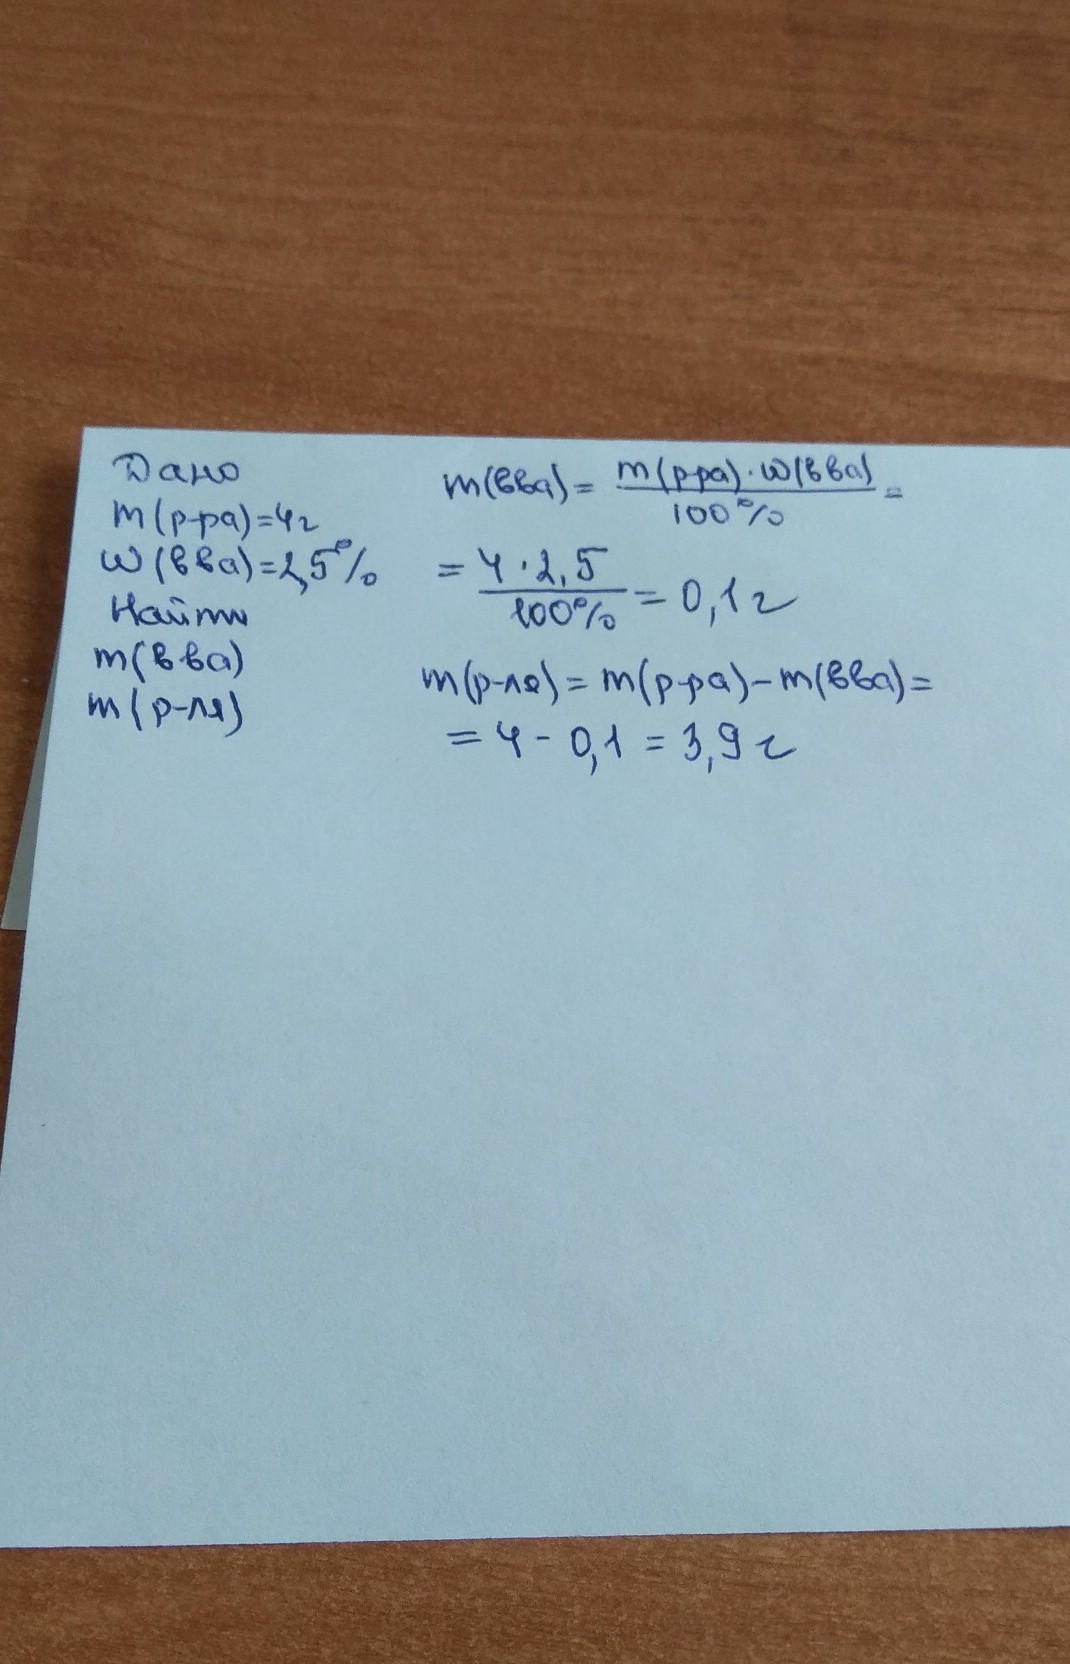 Дано
m(р-ра)=4г
w(вва)=2,5%
Найти
m(вва)
m(р-ля)
m(вва) = m(р-ра)·w(вва) / 100% =
= 4·2,5 / 100% = 0,1г
m(р-ля) = m(р-ра) - m(вва) =
= 4 - 0,1 = 3,9г